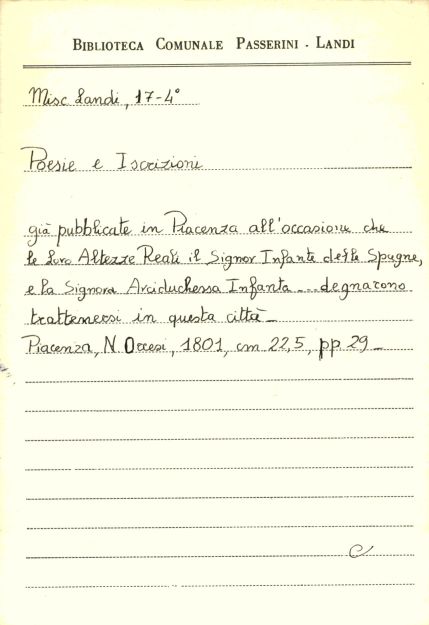 BIBLIOTECA COMUNALE PASSERINI - LANDI
Misc Landi, 17-4°
Poesie e Iscrizioni
già pubblicate in Piacenza all'occasione che
le Loro Altezze Reali il Signor Infante delle Spagne,
e la Signora Arciduchessa Infanta ... degnarono
trattenersi in questa città_
Piacenza, N. Orcesi, 1801, cm 22,5, pp 29_